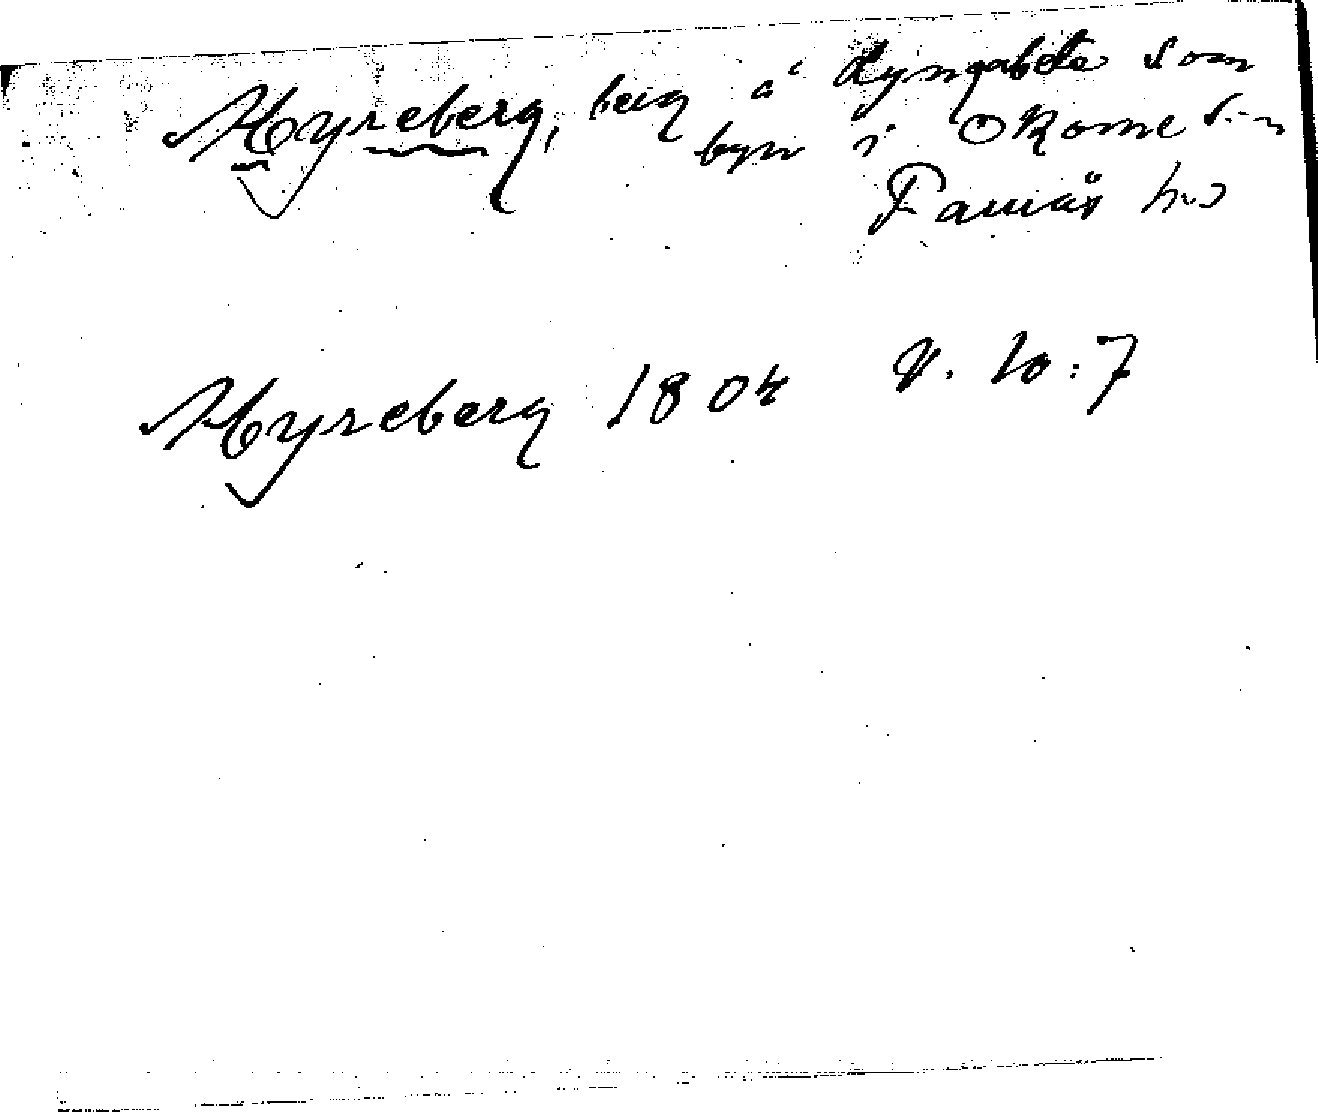 Myreberg, berg å Lyngabete som
byn i Okome s-n
Faurås hd
Myreberg 1804 V. 10:7